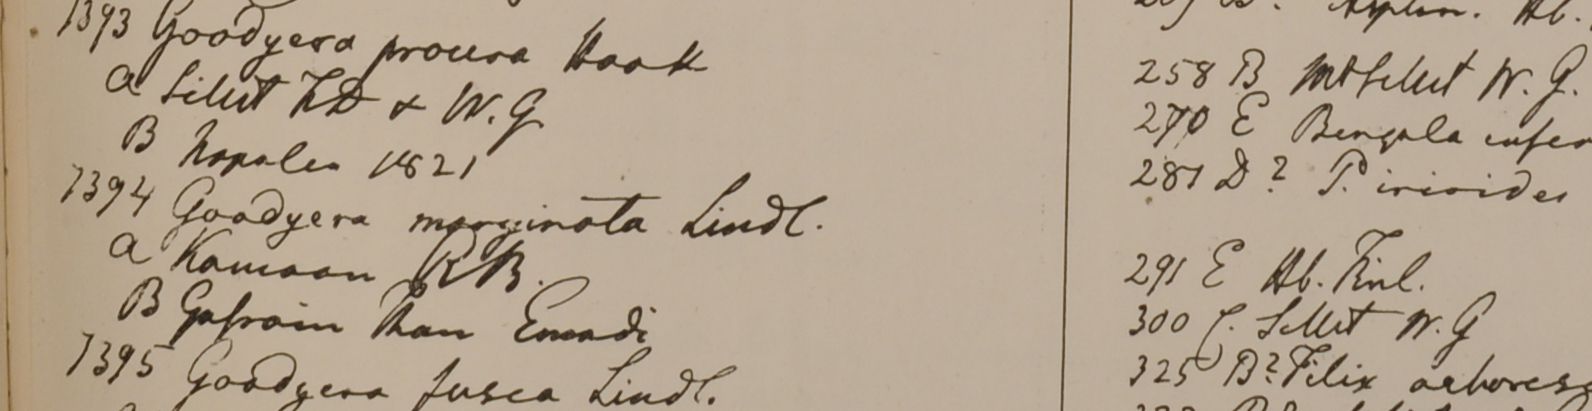 7393 Goodyera procera Hook
a Sillet FD & W. G
B Napalia 1821
7394 Goodyera marginata Lindl.
a Kamaon R B.
B Gossain Than Emodi
7395 Goodyera fusca Lindl.
258 B Mt Sillet W. G.
270 E Bengala infer
281 D? P. irioides
291 E Hb. Finl.
300 C. Sillet W. G
325 B? Filix arboresc